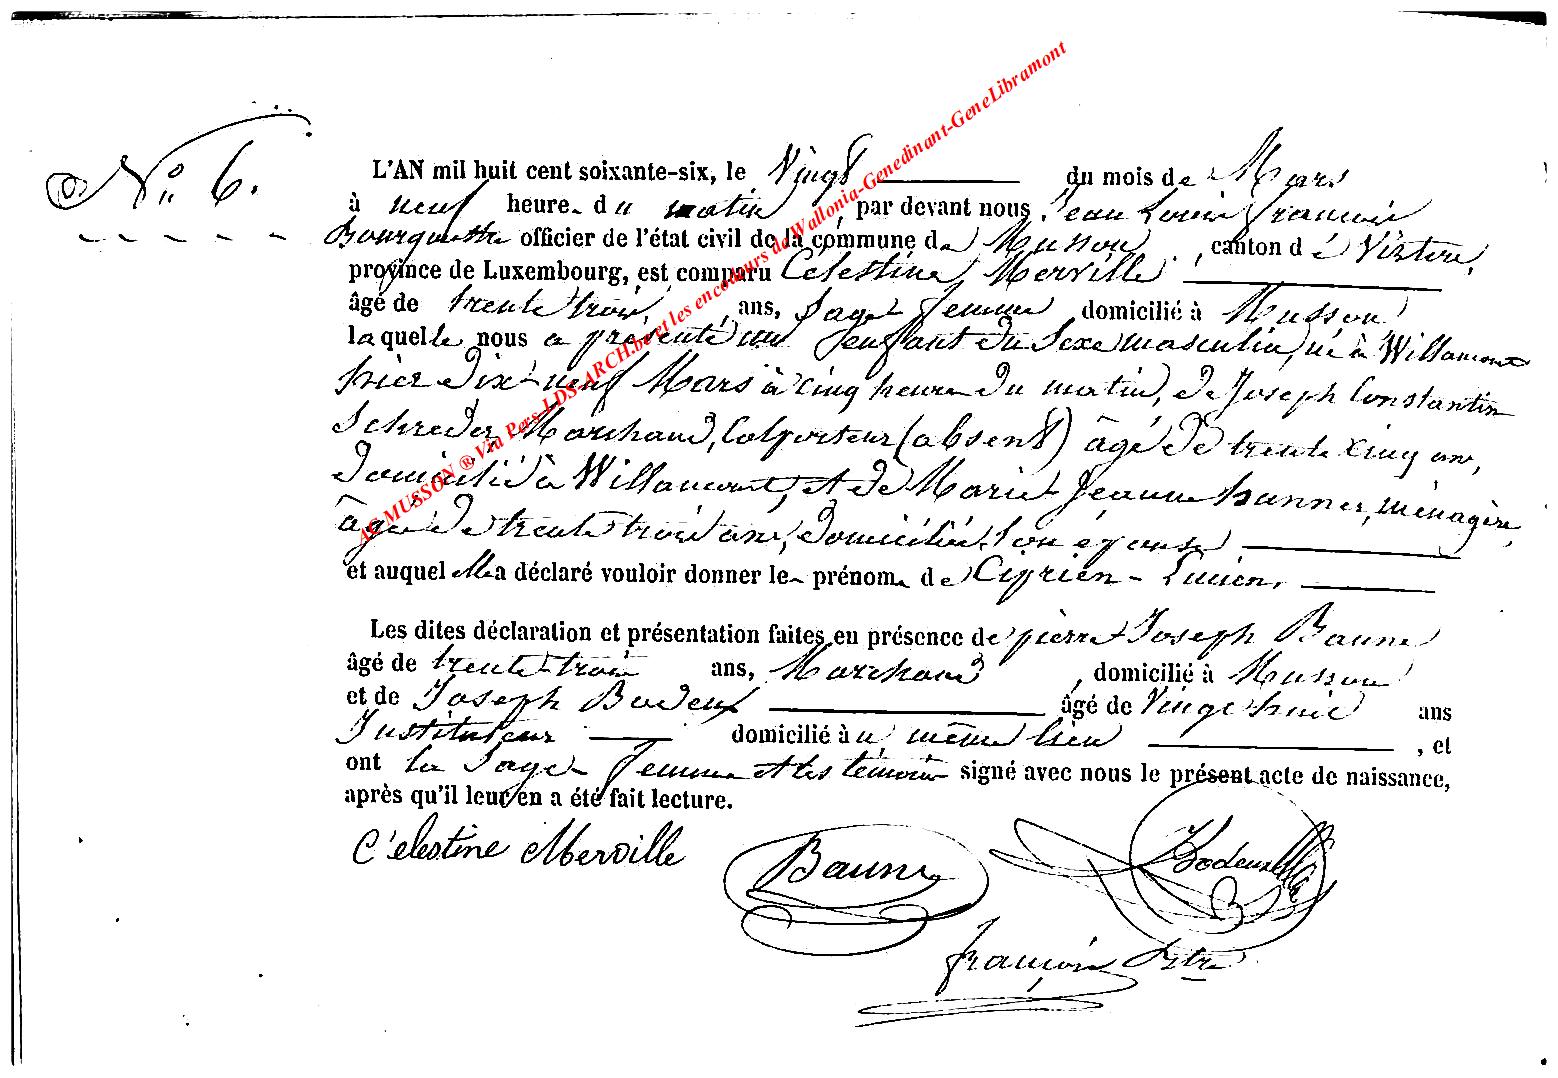 N.o 6.
L'AN mil huit cent soixante-six, le Vingt du mois de Mars
à neuf heure du matin, par devant nous Jean Louis François
Bourguestre officier de l'état civil de la commune de Musson, canton de Virton,
province de Luxembourg, est comparu Célestine Merville
âgé de trente trois, ans, Sage femme domicilié à Musson
laquelle nous a présenté un Enfant du Sexe masculin, né à Willancourt
hier dix-neuf Mars à cinq heure du matin, de Joseph Constantin
Schreder, Marchand, Colporteur (absent) âgé de trente cinq ans,
domicilié à Willancourt, et de Marie Jeanne hanner, ménagère,
âgée de trente trois ans, domiciliée, son épouse
et auquel elle a déclaré vouloir donner le prénom de Ciprien - Lucien,
Les dites déclaration et présentation faites en présence de pierre Joseph Baune
âgé de trente-trois ans, Marchand, domicilié à Musson
et de Joseph Bodeux âgé de Vingt huit ans
Instituteur domicilié au même lieu, et
ont la Sage-femme et les témoins signé avec nous le présent acte de naissance,
après qu'il leur en a été fait lecture.
Célestine Merville Baune JBodeux
François
AC MUSSON ® Via Pers-LDS-ARCH.be et les encodeurs de Wallonia-Genedinant-GeneLibramont